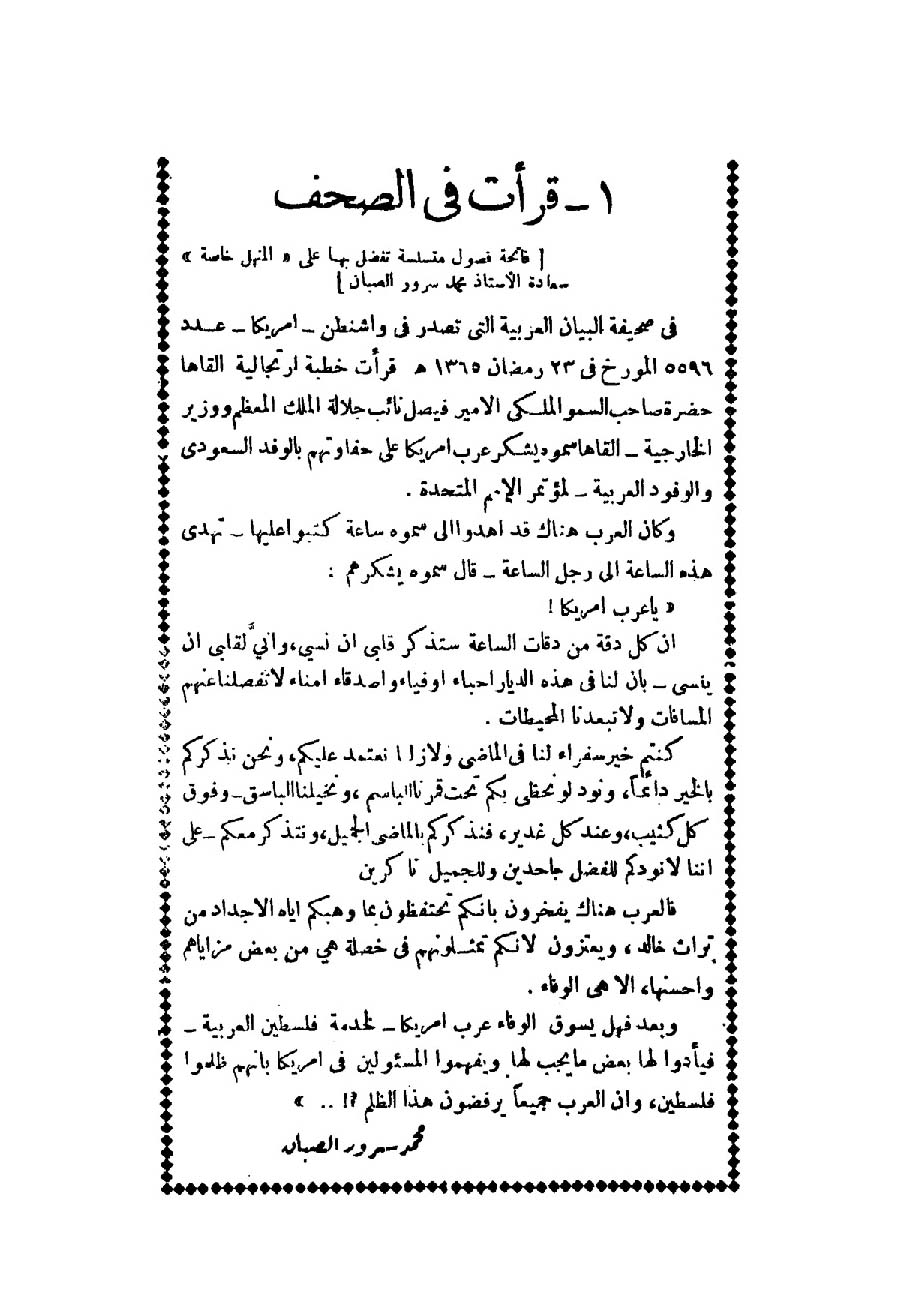 ١ - قرأت فى الصحف
[ فاتحة فصول متسلسلة تفضل بها على « المنهل خاصة »
سعادة الأستاذ محمد سرور الصبان ]
فى صحيفة البيان العربية التى تصدر فى واشنطن - امريكا - عدد
٥٥٩٦ المورخ فى ٢٣ رمضان ١٣٦٥ هـ قرأت خطبة ارتجالية القاها
حضرة صاحب السمو الملكى الامير فيصل نائب جلالة الملك المعظم ووزير
الخارجية - القاها سموه يشكر عرب امريكا على حفاوتهم بالوفد السعودى
والوفود العربية - لمؤتمر الامم المتحدة .
وكان العرب هناك قد اهدوا الى سموه ساعة كتبوا عليها - تهدى
هذه الساعة الى رجل الساعة - قال سموه يشكرهم :
« ياعرب امريكا !
ان كل دقة من دقات الساعة ستذكر قلبى ان نسي، وانيَّ لقلبى ان
ينسى - بان لنا فى هذه الديار احباء اوفياء واصدقاء امناء لا تفصلنا عنهم
المسافات ولا تبعدنا المحيطات .
كنتم خير سفراء لنا فى الماضى ولازلنا نعتمد عليكم، ونحن نذكركم
بالخير دائماً، ونود لو نحظى بكم تحت قمرنا الباسم، ونخيلنا الباسق - وفوق
كل كثيب، وعند كل غدير، فنذكركم بالماضى الجميل، ونتذكر معكم - على
اننا لا نودكم للفضل جاحدين وللجميل ناكرين
فالعرب هناك يفخرون بانكم تحتفظون بما وهبكم اياه الاجداد من
تراث خالد، ويعتزون لانكم تمثلونهم فى خصلة هي من بعض مزاياهم
واحسنها، الا هى الوفاء .
وبعد فهل يسوق الوفاء عرب امريكا - لخدمة فلسطين العربية -
فيأدوا لها بعض مايجب لها ويفهموا المسئولين فى امريكا بانهم ظلموا
فلسطين، وان العرب جميعاً يرفضون هذا الظلم ؟! .. »
محمد سرور الصبان